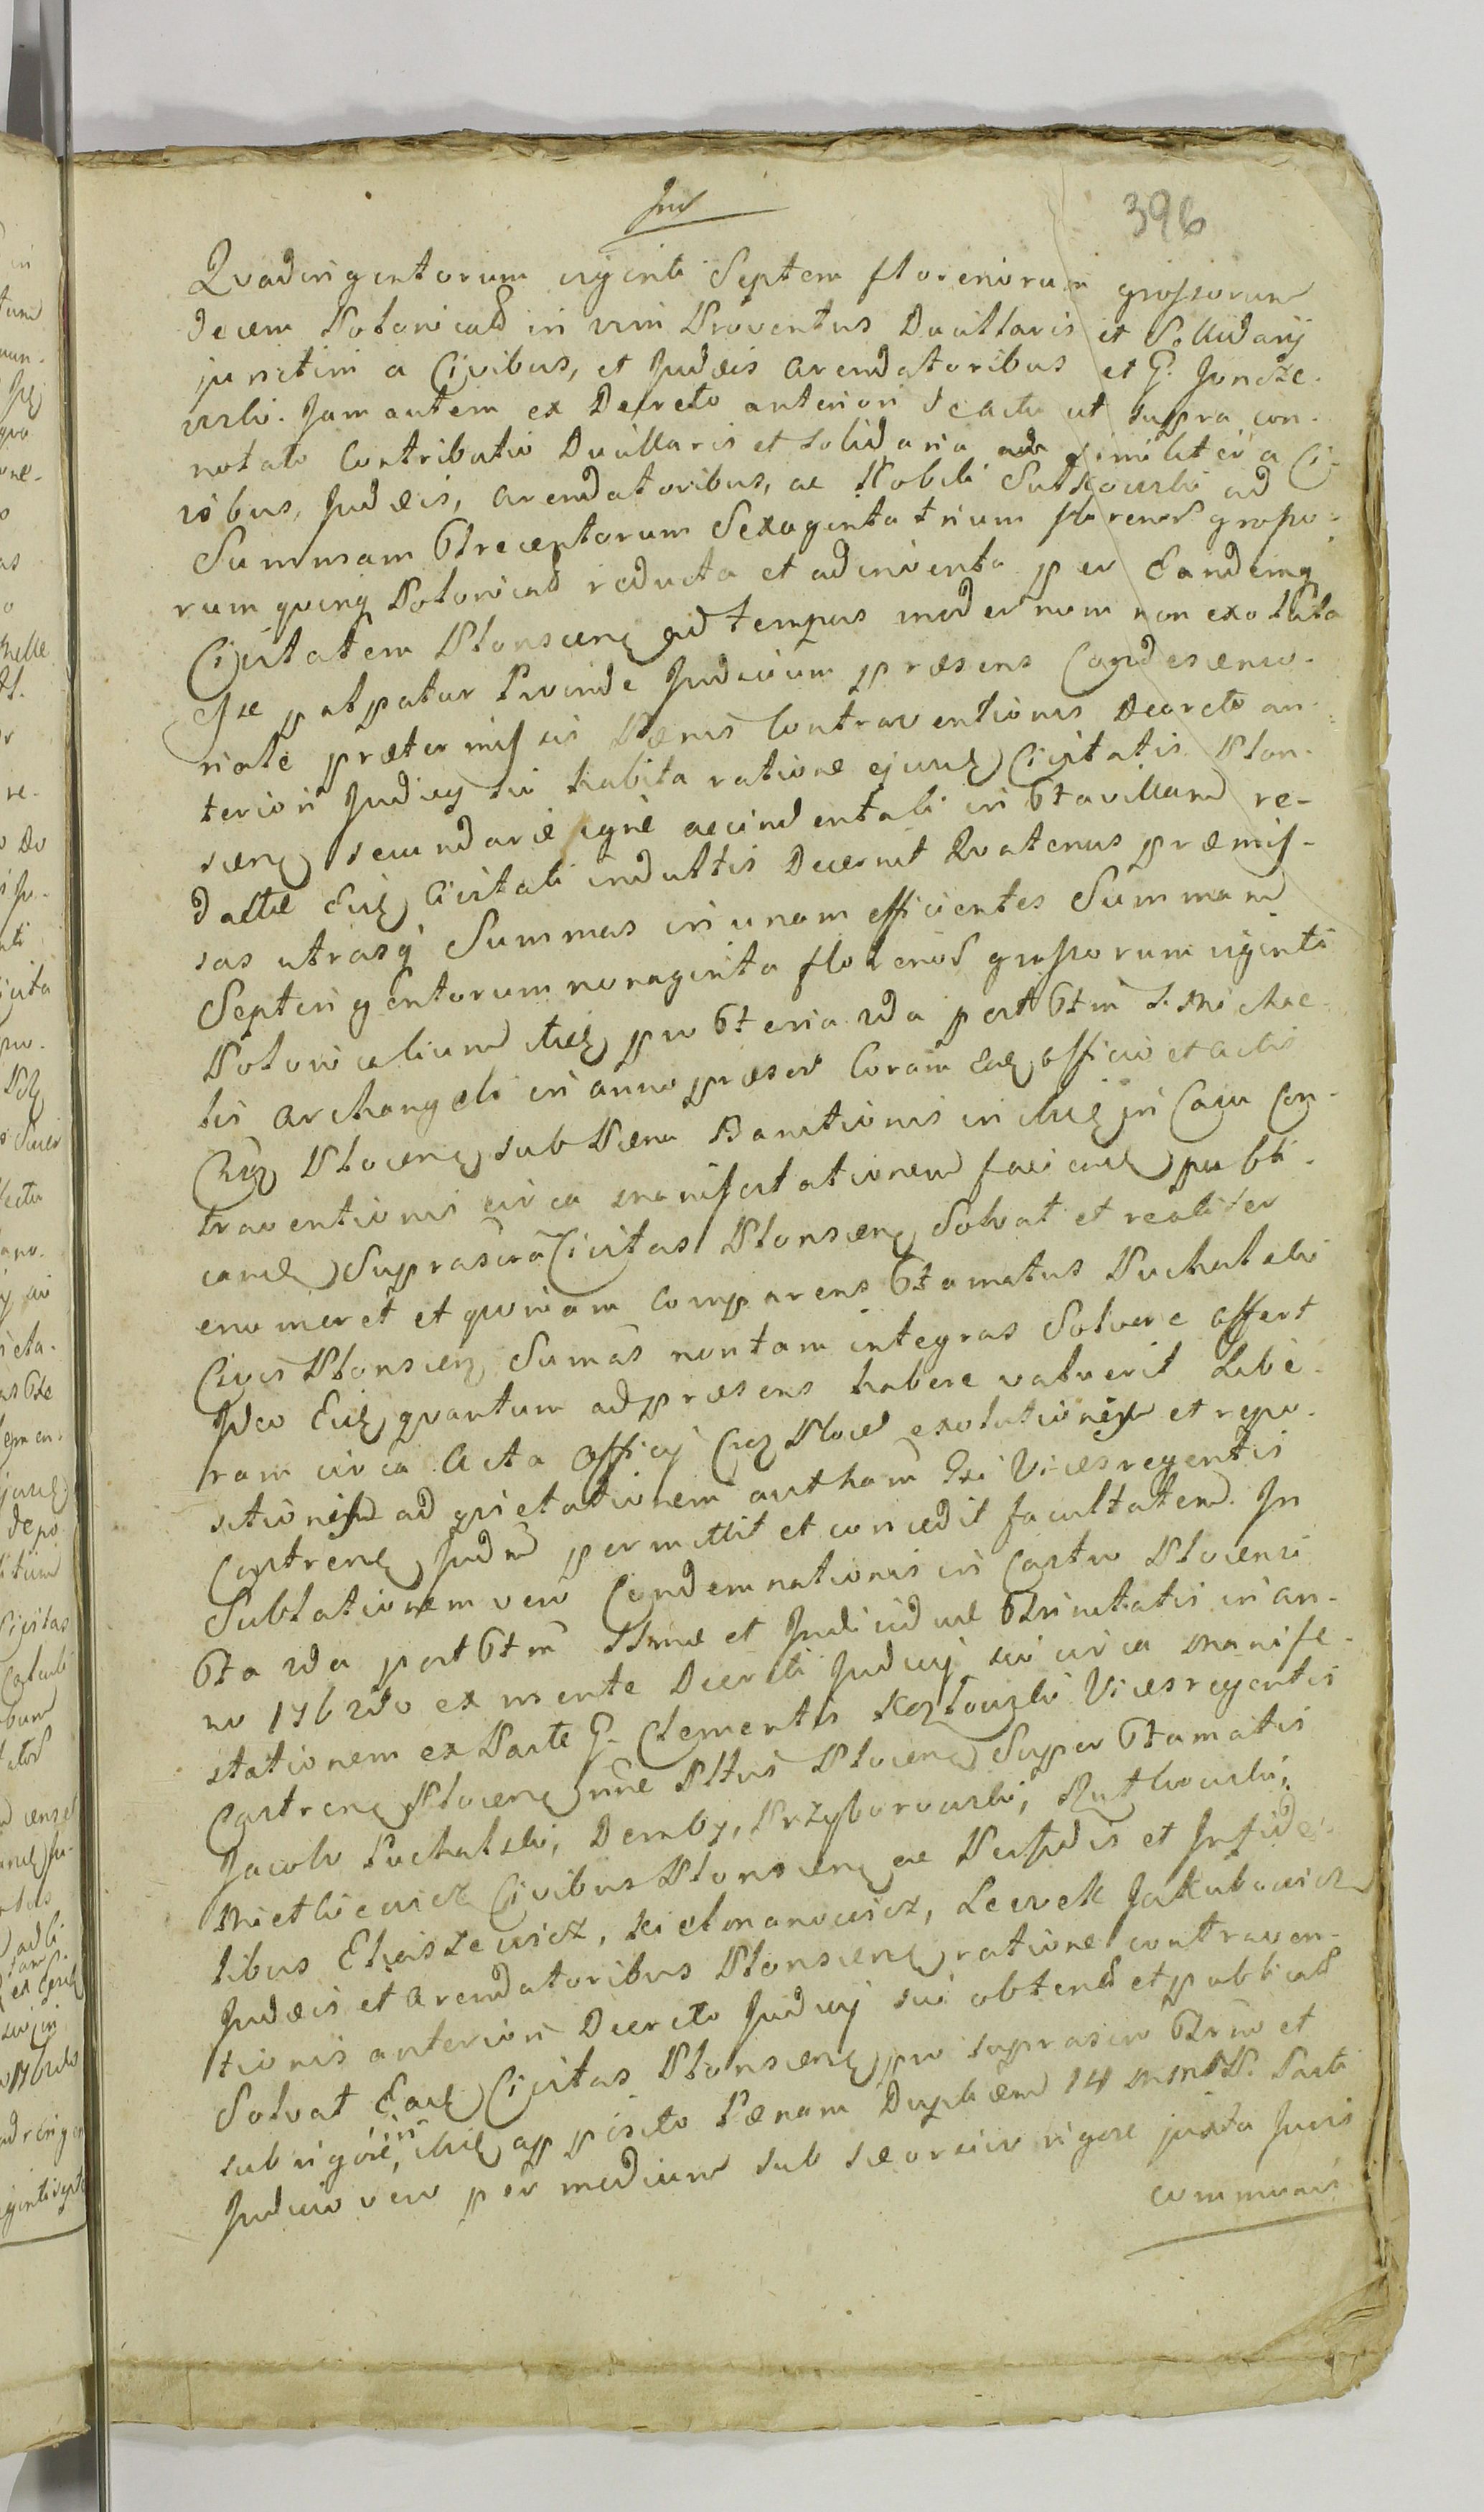 396
Quadringentorum viginti Septem florenorum grossorum
decem Polonicald in vim Proventus Ducillaris et Sollidarij
junctim a Civibus, et Judæis Arendatoribus et G. Jundze-
wski. Jam autem ex Decreto anteriori de actu ut supra con-
notato Contributio Ducillaris et solidaria similiter a Ci-
vibus, Judæis, Arendatoribus, ac Nobili Sutkowski ad
Summam Trecentorum Sexaginta trium florenor grosso-
rum quinq Polonicald reducta et adinventa per Eandemq
Civitatem Plonscenę ad tempus modernum non exoluta
esse patpatur Proinde Judicium præsens Condescenso-
riale prætermissis Pænis Contraventionis Decreto an-
teriori Judicij sui habita ratione ejusdę Civitatis Plon-
scenę secundarie igne accindentali in favillam re-
dactæ Eidę Civitati indultis Decernit Quatenus præmis-
sas utrasq Summas in unam efficientes Summam
Septingentorum nonaginta florenor grossorum viginti
Polonicalium pro feria 2da post ftm S. Michae-
lis Archangeli in anno præsen Coram Eodę officio et actis
Cręz Plocenę sub Pæna Banitionis in Casu Con-
traventionis circa manifestationem faciendę publi-
candę Suprascra Civitas Plonscenę Solvat et realiter
enumeret et quoniam comparens famatus Puchalski
Civis Plonscenę Sumas non tam integras Solvere offert
Ideo Eidę quantum ad præsens habere valuerit Libe-
ram circa Acta Officij Crez Plocel exolutionem et repo-
sitionem ad quietationem autham Gsi Vicesregentis
Castrenę Judm permittit et concedit facultatem. In
Sublationem vero Condemnationis in Castro Plocensi
fta 2da post ftm Ssmæ et Individuæ Trinitatis in an-
no 1762do ex mente Decreti Judicij sui circa manife-
stationem ex Parte G. Clementis Kozlowski Vicesregentis
Castrenę Plocenę Pltus Plocenę Super famatis
Jacobo Puchalski, Demby, Przyborowski, Rutkowski,
Mietlicwicz Civibus Plonscenę ac Perfidis et Infide-
libus Eliaszewicz, Kielmanowicz, Lewek Jakubowicz
Judæis et Arendatoribus Plonscenę ratione contraven-
tionis anteriori Decreto Judicij sui obtend et publicad
Solvat Eadę Civitas Plonscenę pro suprascro Trno et
sub rigore, in apposito Pænam Duplicem 14 MMPP. Parti
Judicio vero per medium sub sæorsivo rigore juxta Juris
communis